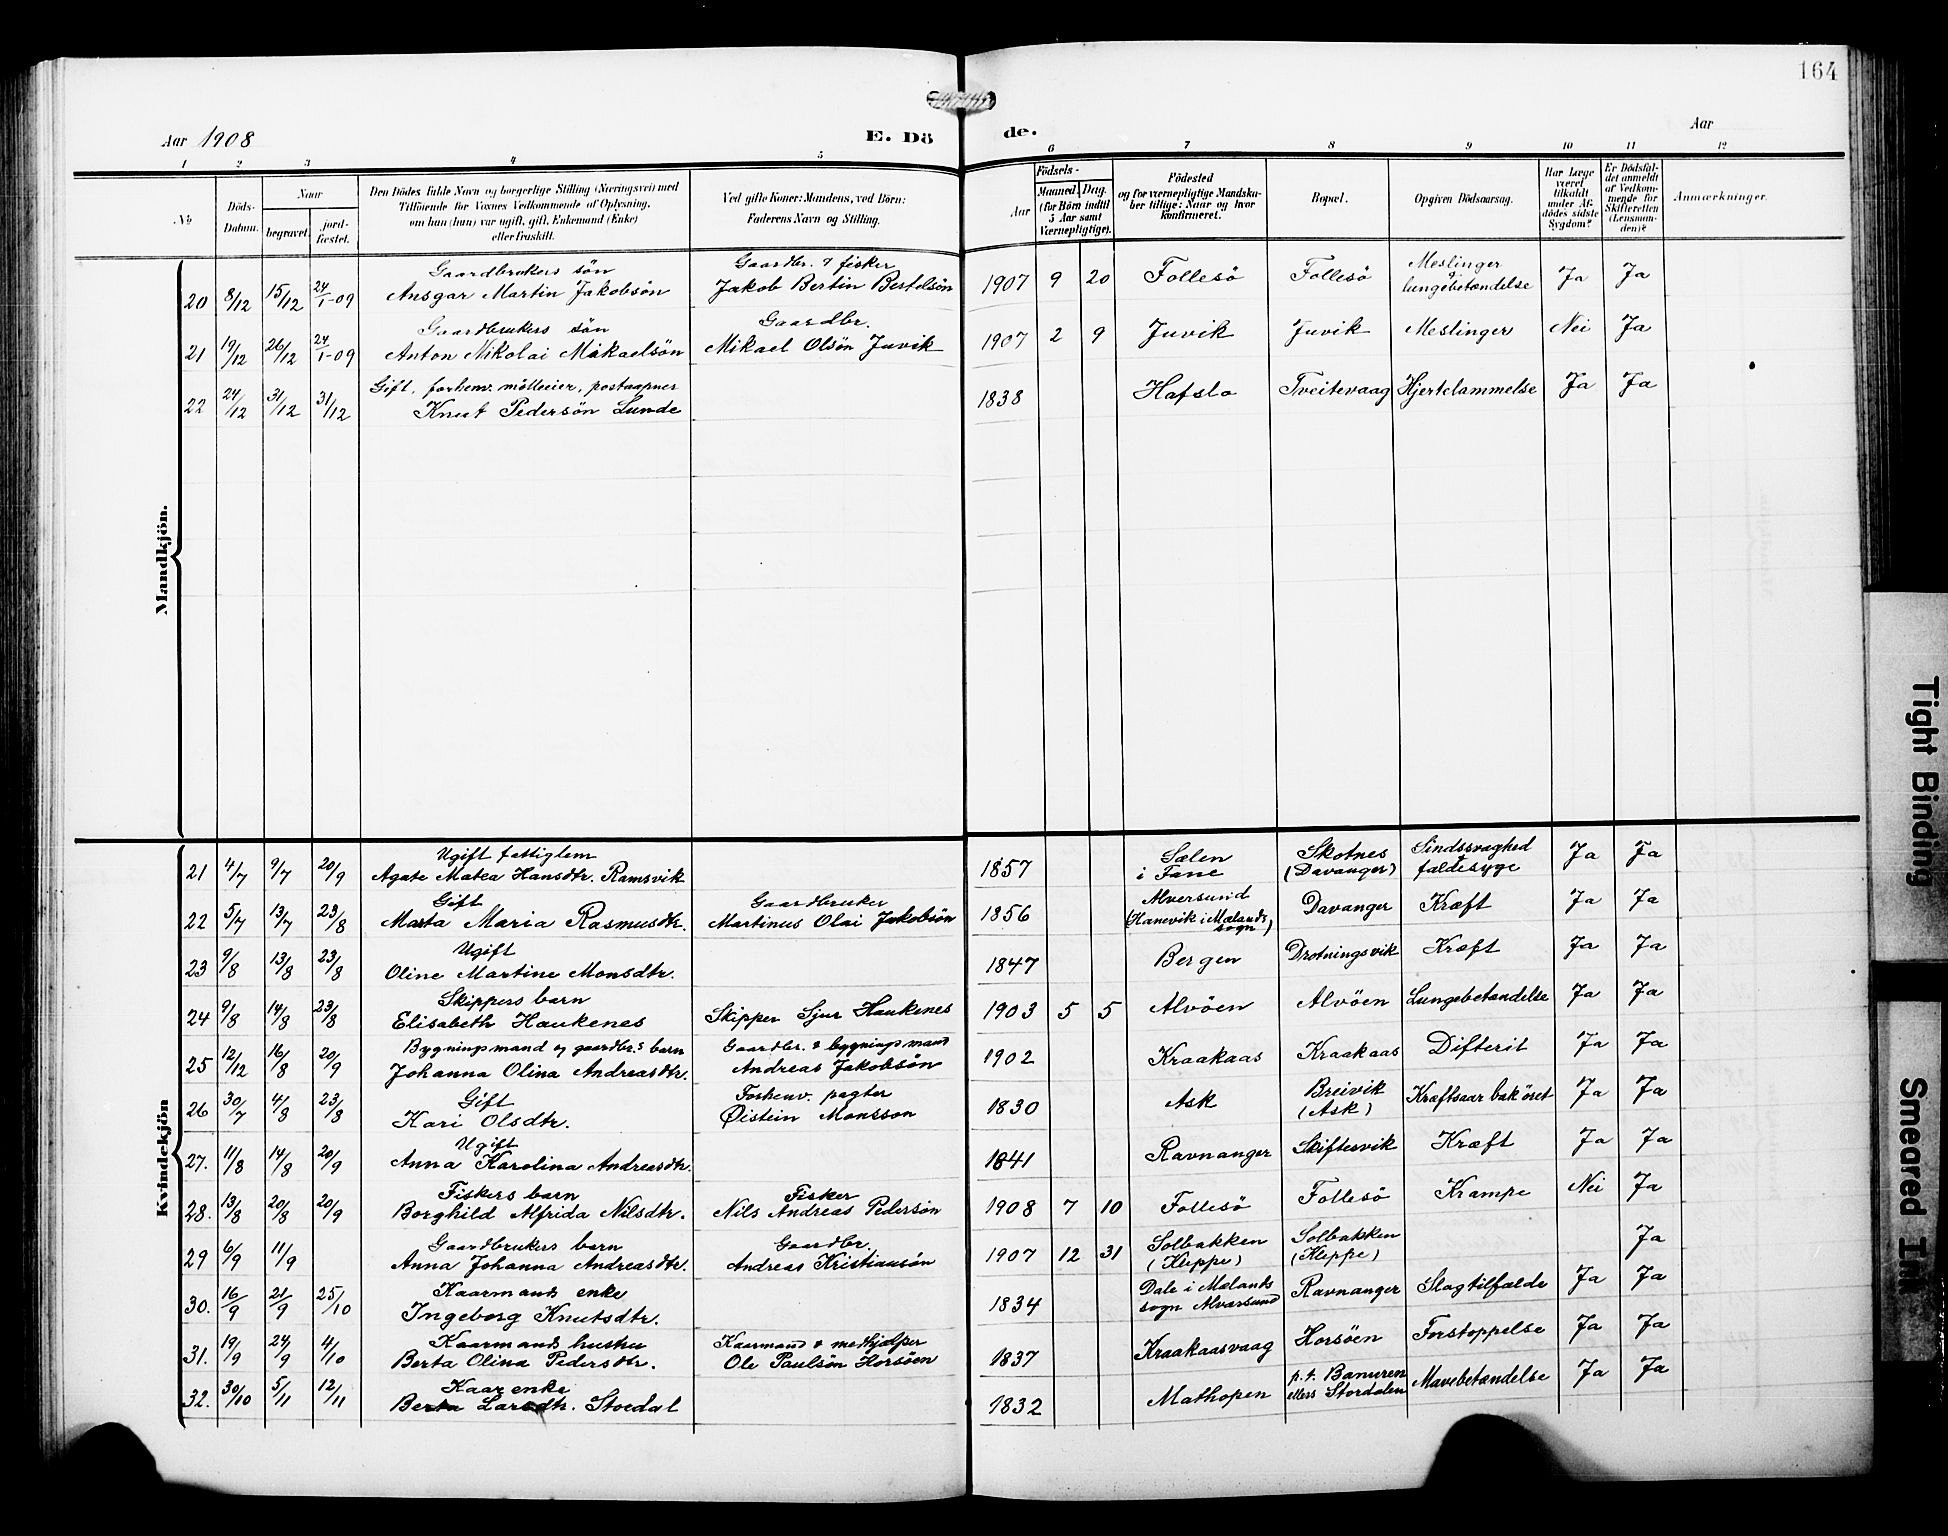 164
Aar 1908
E. Dö
de.
Aar
1 2 3 4 5 6 7 8 9 10 11 12
No
Döds-
Datum.
Naar
begravet
jord-
fæstet.
Den Dödes fulde Navn og borgerlige Stilling (Næringsvei) med
Tilföiende for Voxnes Vedkommende af Oplysning,
om han (hun) var ugift, gift, Enkemand (Enke)
eller fraskilt.
Ved gifte Koner: Mandens, ved Börn:
Faderens Navn og Stilling.
Födsels-
Aar
Maaned. Dag.
(for Börn indtil
5 Aar samt
Værnepligtige).
Födested
og for værnepligtige Mandska-
ber tillige: Naar og hvor
konfirmeret.
Bopæl.
Opgiven Dödsaarsag.
Har Læge
været
tilkaldt
under Af-
dödes sidste
Sygdom?
Er Dödsfal-
det anmeldt
af Vedkom-
mende for
Skifteretten
(Lensman-
den)?
Anmærkninger.
Mandkjön.
Gaardbrukers sön Gaardbr. & fisker Meslinger
20 8/12 15/12 24/1-09 Ansgar Martin Jakobsön Jakob Bertin Bertelsön 1907 9 20 Follesö Follesö & lungebetændelse Ja Ja
Gaardbrukers sön Gaardbr.
21 19/12 26/12 24/1-09 Anton Nikolai Mikaelsön Mikael Olsön Juvik 1907 2 9 Juvik Juvik Meslinger Nei Ja
Gift, forhenv. mölleeier, postaapner
22 24/12 31/12 31/12 Knut Pedersön Lunde 1838 Hafslo Tveitevaag Hjertelammelse Ja Ja
Kvindekjön
Ugift fattiglem Sælen Skotnes Sindssvaghed
21 4/7 9/7 20/9 Agate Matea Hansdtr. Ramsvik 1857 i Fane (Davanger) + faldesyge Ja Ja
Gift Gaardbruker Alversund
22 5/7 13/7 23/8 Marta Maria Rasmusdtr. Martinus Olai Jakobsön 1856 (Hanevik i Mælands sogn) Davanger Kræft Ja Ja
Ugift
23 9/8 13/8 23/8 Oline Martine Monsdtr. 1847 Bergen Drotningsvik Kræft Ja Ja
Skippers barn
24 9/8 14/8 23/8 Elisabeth Haukenes Skipper Sjur Haukenes 1903 5 5 Alvöen Alvöen Lungebetændelse Ja Ja
Bygningsmand og gaardbr.s barn Gaardbr. & bygningsmand
25 12/12 16/8 20/9 Johanna Olina Andreasdtr. Andreas Jakobsön 1902 Kraakaas Kraakaas Difterit Ja Ja
Gift Forhenv. pagter Breivik
26 30/7 4/8 23/8 Kari Olsdtr. Øistein Monsson 1830 Ask (Ask) Kræftsaar bak öret Ja Ja
Ugift
27. 11/8 14/8 20/9 Anna Karolina Andreasdtr. 1841 Ravnanger Skiftesvik Kræft Ja Ja
Fiskers barn Fisker
28. 13/8 20/8 20/9 Borghild Alfrida Nilsdtr. Nils Andreas Pedersön 1908 7 10 Follesö Follesö Krampe Nei Ja
Gaardbrukers barn Gaardbr. Solbakken Solbakken
29 6/9 11/9 Anna Johanna Andreasdtr. Andreas Kristiansön 1907 12 31 (Kleppe) (Kleppe) Ja
Kaarmands enke Dale i Mælands
30. 16/9 21/9 25/10 Ingeborg Knutsdtr. 1834 sogn Alversund Ravnanger Slagtilfælde Ja Ja
Kaarmands hustru Kaarmand & medhjælper
31. 19/9 24/9 4/10 Berta Olina Pedersdtr. Ole Paulsön Horsöen 1837 Kraakaasvaag Horsöen Forstoppelse Ja Ja
Kaarenke p.t. Banuren
32. 30/10 5/11 12/11 Berta Larsdtr. Stordal 1832 Mathopen ellers Stordalen Mavebetændelse Ja Ja
Tight Binding
Smeared Ink